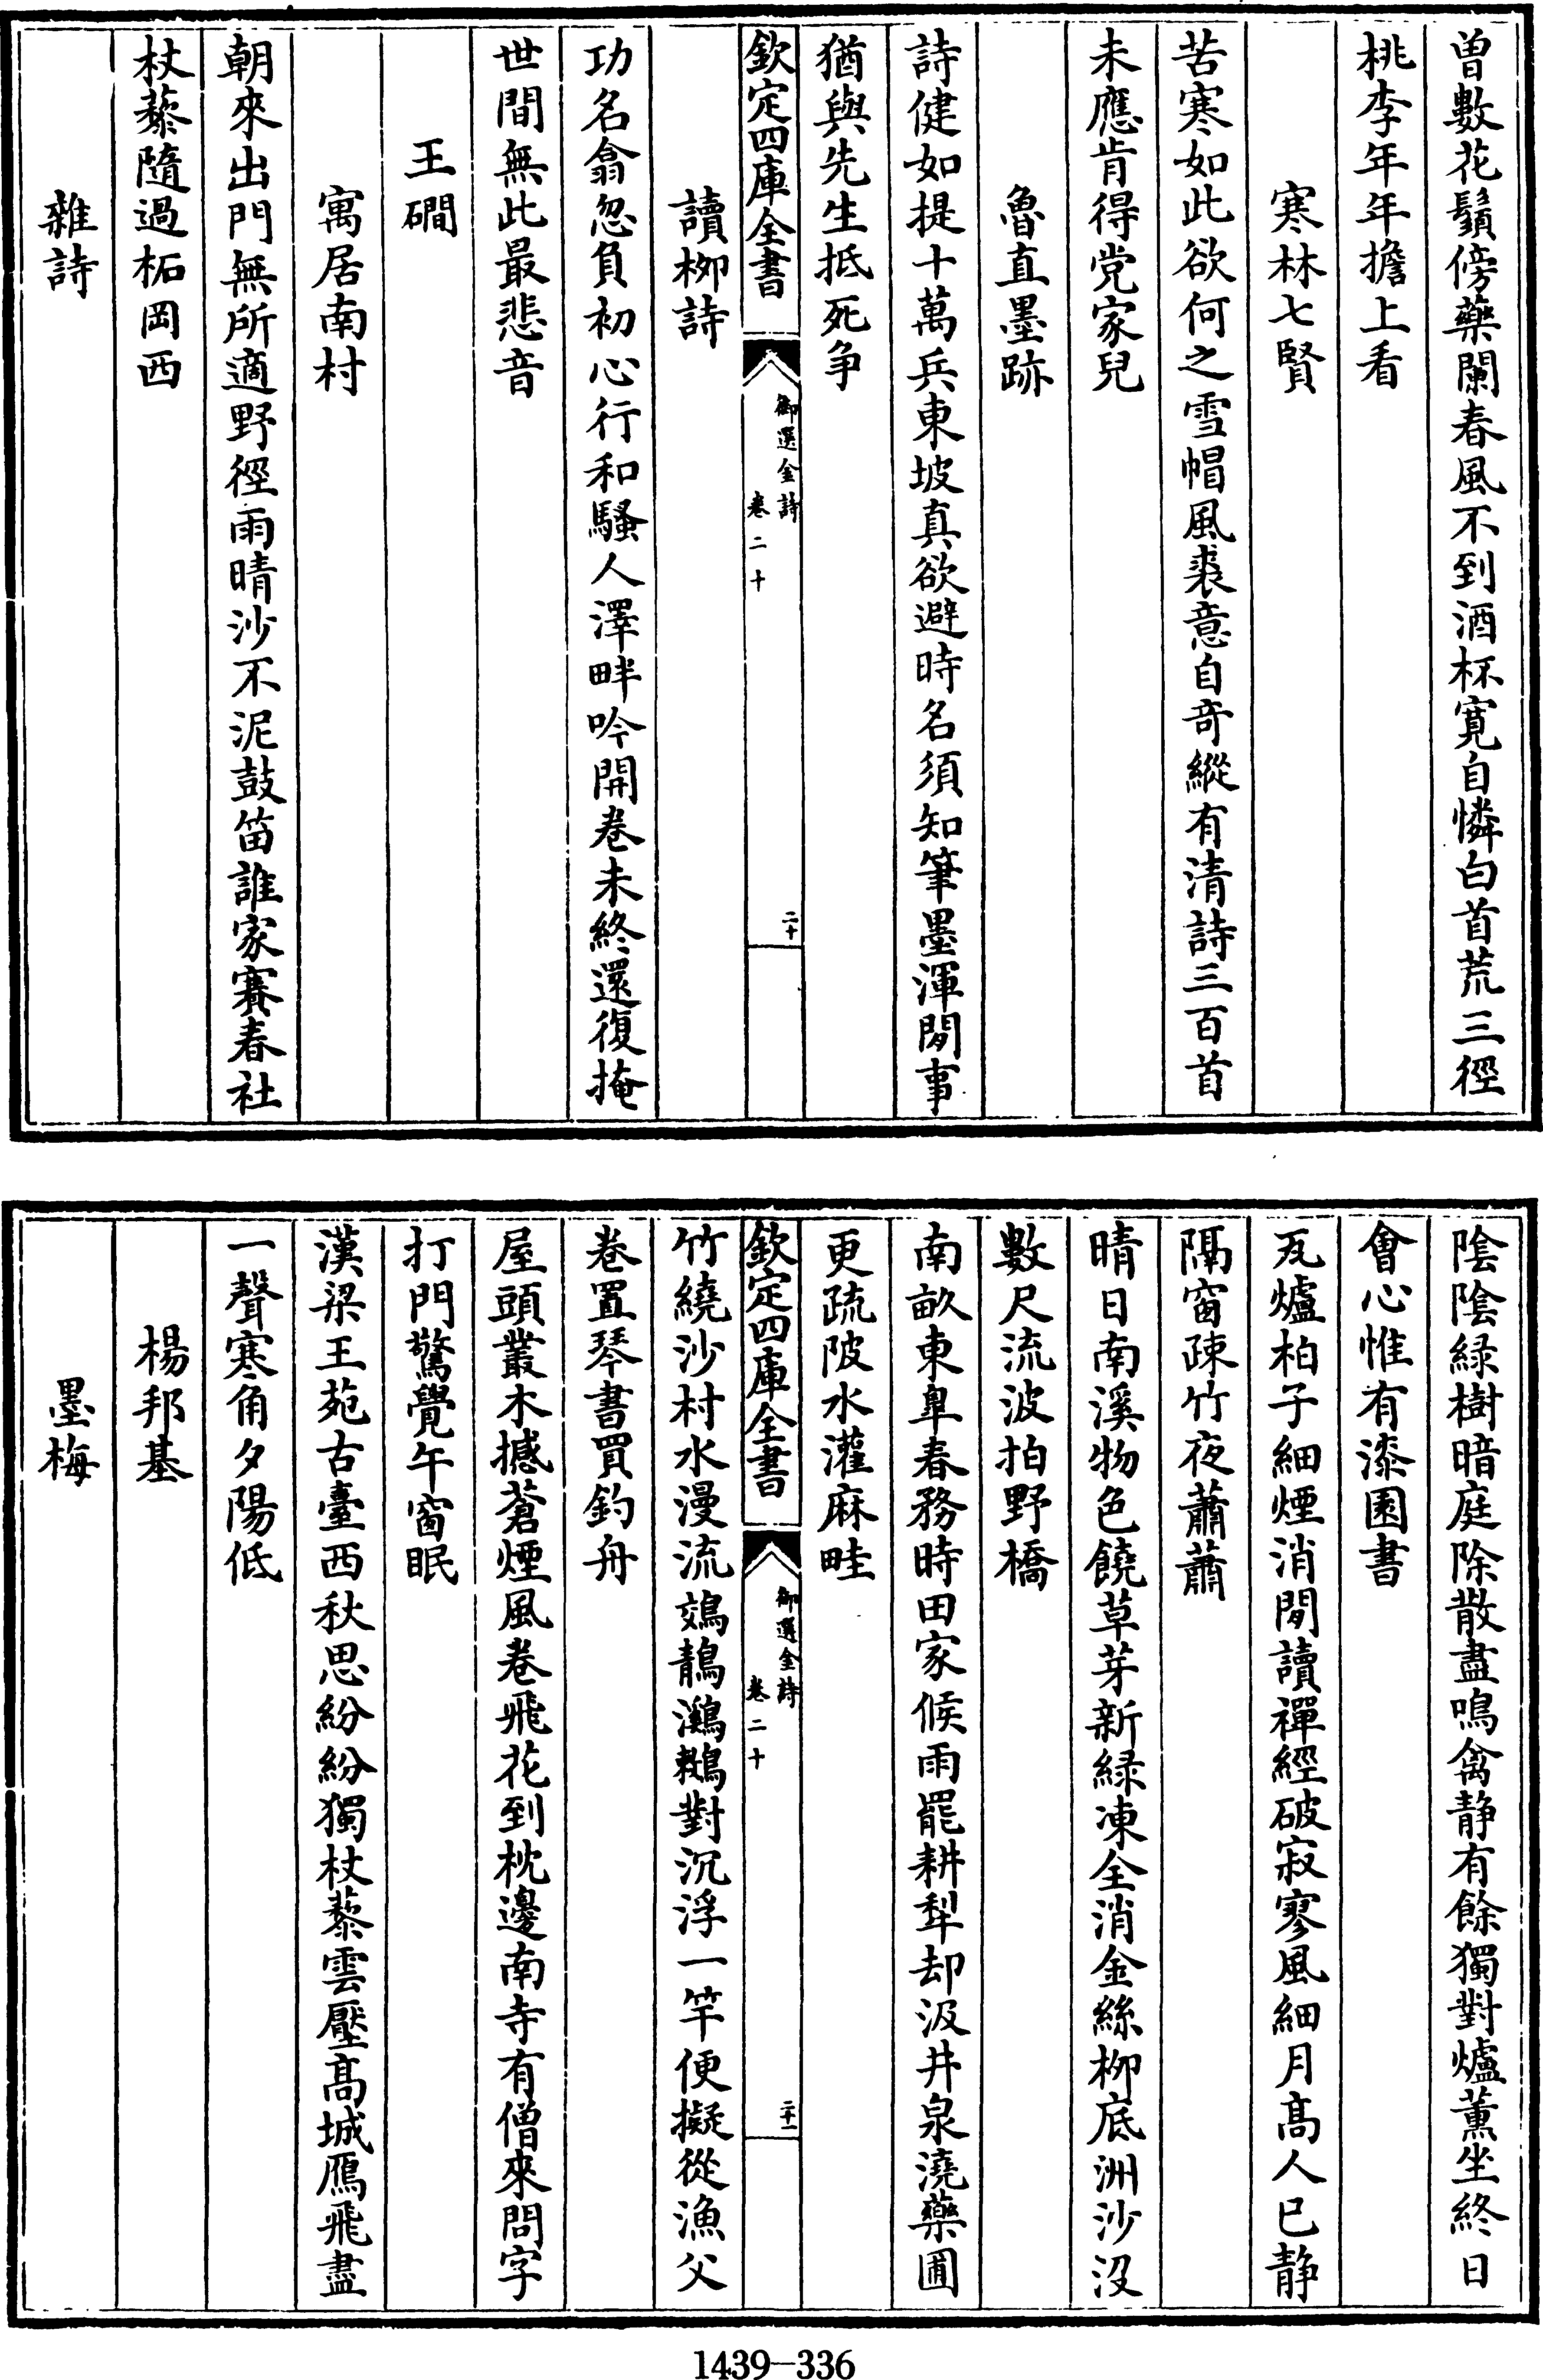 曽數花鬚傍藥闌春風不到酒杯寛自憐白首荒三徑
桃李年年擔上看
寒林七賢
苦寒如此欲何之雪帽風裘意自竒縱有清詩三百首
未應肯得党家兒
魯直墨跡
詩健如提十萬兵東坡真欲避時名須知筆墨渾閒事
猶與先生抵死争
欽定四庫全書
御選金詩
卷二十
二十
讀栁詩
功名翕忽負初心行和騷人澤畔吟開卷未終還復掩
世間無此最悲音
王磵
寓居南村
朝來出門無所適野徑雨晴沙不泥鼓笛誰家賽春社
杖藜隨過柘岡西
雜詩
陰陰緑樹暗庭除散盡鳴禽静有餘獨對爐薰坐終日
會心惟有漆園書
瓦爐柏子細煙消閒讀禪經破寂寥風細月髙人已静
隔窗疎竹夜蕭蕭
晴日南溪物色饒草芽新緑凍全消金絲栁底洲沙沒
數尺流波拍野橋
南畝東臯春務時田家候雨罷耕犂却汲井泉澆藥圃
更疏陂水灌麻畦
欽定四庫全書
御選金詩
卷二十
二十一
竹繞沙村水漫流鵁鶄鸂鶒對沉浮一竿便擬從漁父
卷置琴書買釣舟
屋頭叢木撼蒼煙風卷飛花到枕邊南寺有僧來問字
打門驚覺午窗眠
漢梁王苑古臺西秋思紛紛獨杖藜雲壓髙城鴈飛盡
一聲寒角夕陽低
楊邦基
墨梅
1439-336